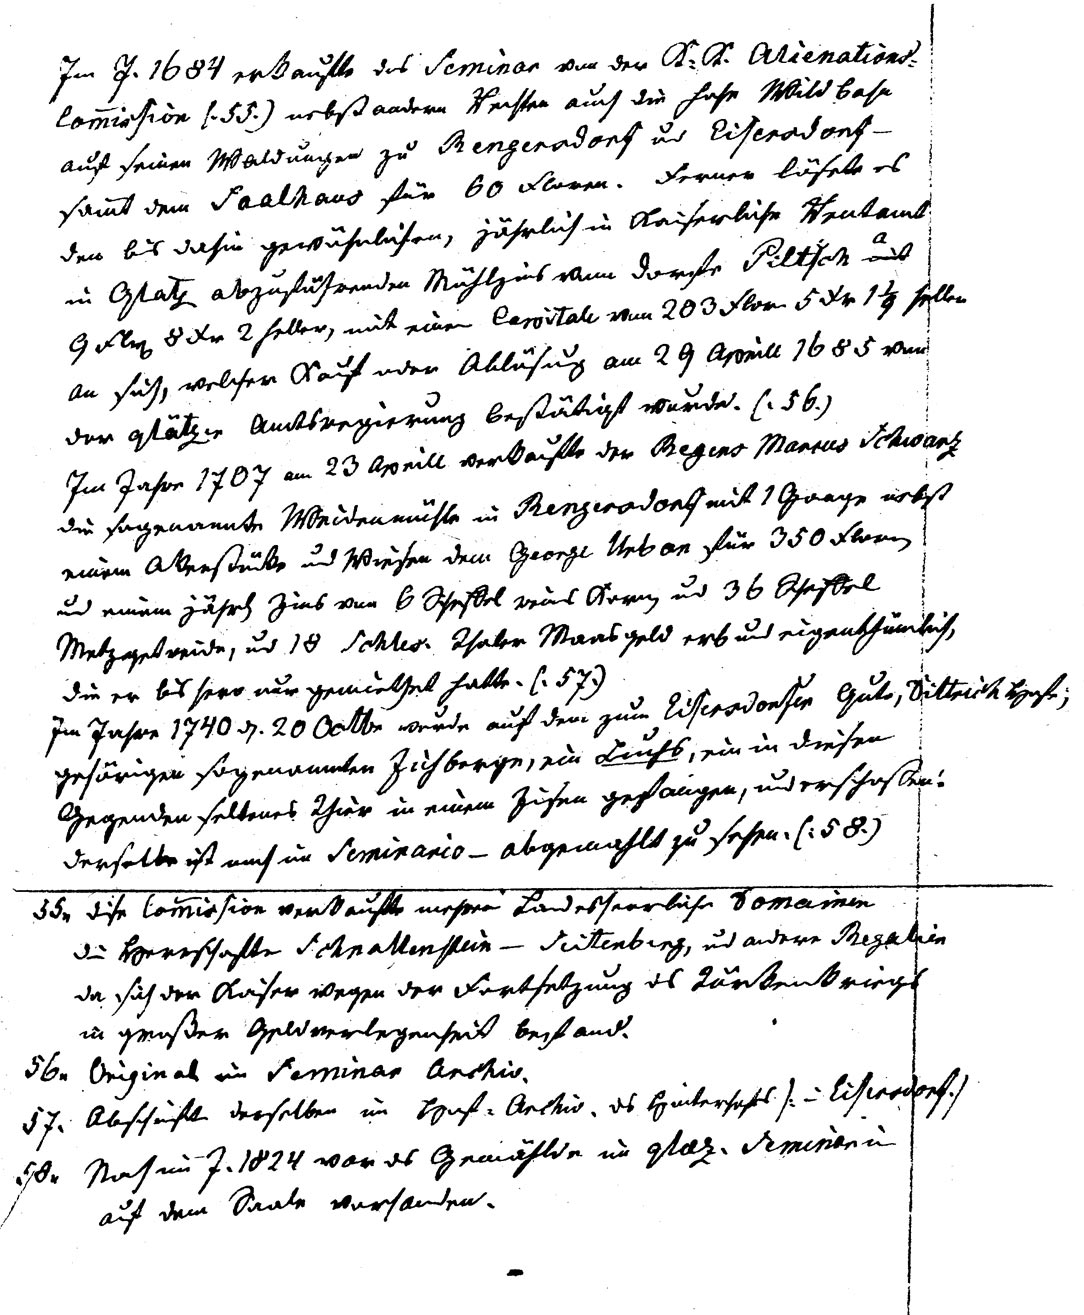 Im J. 1684 erkaufte das Seminar von der K. K. Alienations-
Commission (:55.) nebst andern Rechten auch die hohe Wildbahn
auf seinen Waldungen zu Rengersdorf und Eisersdorf –
samt dem Saalhaus für 60 Floren. Ferner lösete es
den bis dahin gewöhnlichen, jährlich in Kaiserliche Rentamt
in Glatz abzuführenden Mühlzins vom Dorfe Piltsch a mit
9 Flor 8 Kr 2 heller, mit einem Capitale von 203 Flor 5 Kr 1 heller
an sich, welcher Kauf oder Ablösung am 29 Aprill 1685 von
der glätzer Amtsregierung bestätigt wurde. (:56.)
Im Jahre 1707 am 23 Aprill verkaufte der Regens Marcus Schwartz
die sogenannte Weidenmühle in Rengersdorf mit 1 Gange nebst
einem Ackerstücke und Wiesen dem George Urban für 350 Floren
und einem jährl Zins von 6 Scheffel reines Korn und 36 Scheffel
Metzgetreide, und 18 Schles. Thaler Maasgeld erb und eigenthümlich,
die er bis hero nur gemiethet hatte. (:57.)
Im Jahre 1740 d. 20 Octbr wurde auf dem zum Eisersdorfer Gute, Dittrich Hofe;
gehörigen sogenannten Zichberge, ein Luchs, ein in diesen
Gegenden seltenes Thier in einem Eisen gefangen, und erschossen:
derselbe ist noch im Seminario – abgemahlt zu sehen. (:58.)
55. diese Commission verkaufte mehrere Landesherrliche Domainen
die Herrschafte Schnallenstein – Seitenberg, und andere Regalien
da sich der Kaiser wegen der Fortsetzung des Türkenkriegs
in großer Geldverlegenheit befand.
56. Original im Seminar Archiv.
57. Abschrift derselben im Hof-Archiv. des Hinterhofs (: in Eisersdorf.)
58. Noch im J. 1824 war das Gemählde im glaz. Seminario
auf dem Saale vorhanden.